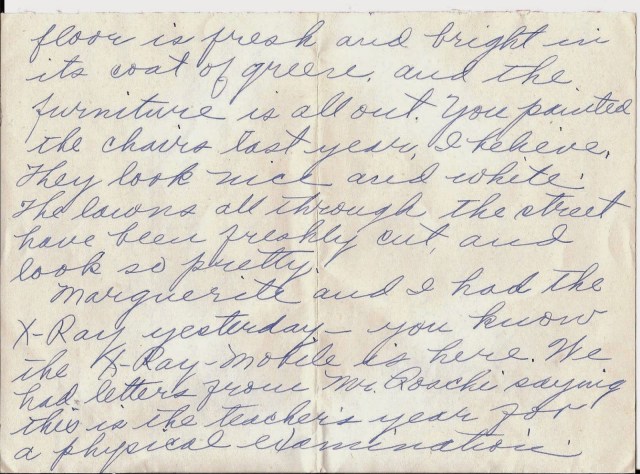 floor is fresh and bright in
its coat of green, and the
furniture is all out. You painted
the chairs last year, I believe.
They look nice and white.
The lawns all through the street
have been freshly cut, and
look so pretty.
Marguerite and I had the
X-Ray yesterday – you know
the X-Ray-Mobile is here. We
had letters from Mr. Roschi saying
this is the teacher's year for
a physical examination.